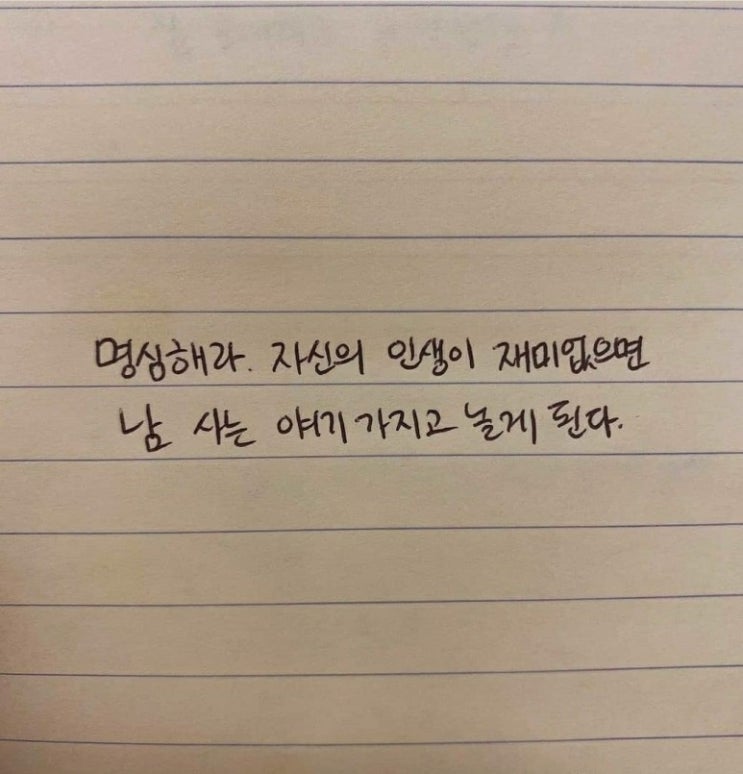 명심해라. 자신의 인생이 재미없으면
남 사는 얘기 가지고 놀게 된다.